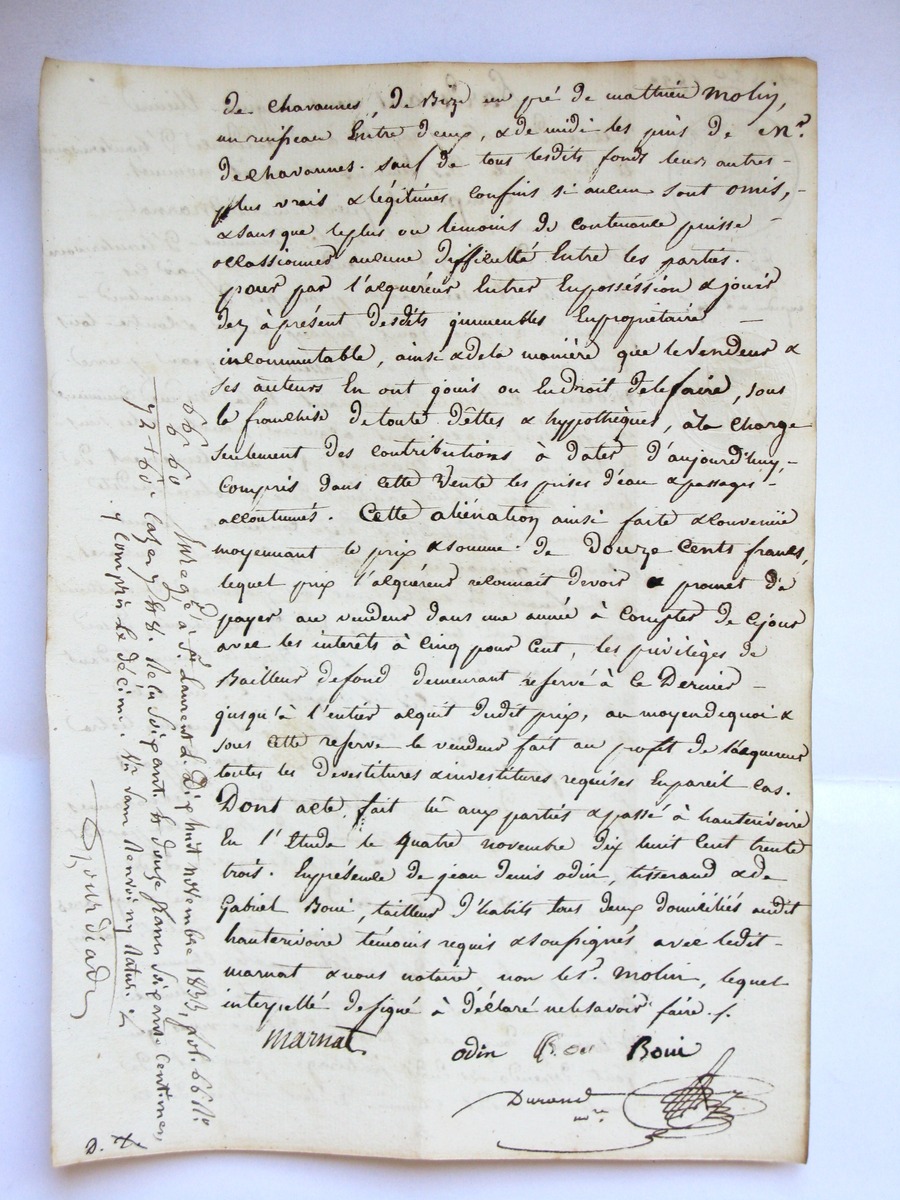 de chavannes, de Bize un pré de mathieu Molin,
un ruisseau Entre deux, & de midi les prés de Mr.
de chavannes. sauf de tous lesdits fonds leurs autres
plus vrais & légitimes confins si aucun sont omis,
& sans que le plus ou le moins de contenance puisse
occassionner aucune difficulté Entre les parties.
pour par l'acquéreur Entrer En possession & jouir
dez à présent desdits immeubles En propriétaire
incommutable, ainsi & de la manière que le Vendeur &
ses auteurs En ont joui ou Eu droit de le faire, sous
la franchise de toute dettes & hypothèques, à la charge
seulement des contributions à dater d'aujourd'huy,
Compris dans cette Vente les prises d'eau & passages
accoutumés. Cette aliénation ainsi faite & convenüe
moyennant le prix & somme de Douze Cents francs,
lequel prix l'acquéreur reconnait devoir & promet de
payer au vendeur dans une année à compter de ce jour
avec les intérêts à cinq pour Cent, les privilèges de
Bailleur de fond demeurant réservé à ce Dernier
jusqu'à l'entier acquit dudit prix, au moyen de quoi &
sous cette reserve le vendeur fait au profit de l'acquereur
toutes les devestitures & investitures requises En pareil cas.
Dont acte, fait lu aux parties & passé à hauterivoire
En l'Etude le quatre novembre dix huit cent trente
trois. En présence de jean denis odin, tisserand & de
Gabriel Boui, tailleur d'habits tous deux domiciliés audit
hauterivoire témoins requis & soussignés avec ledit
marnat & nous notaire, non le sr. Molin, lequel
interpellé de signé à déclaré ne le savoir faire /.
Marnat
odin Boui
Durand
nre
66 "
6 60
72 + 60 c
Enregé à St. Laurent le Dix huit novembre 1833, fol. 66 No.
Case 7 & 8. Reçu Soixante & douze francs Soixante centimes,
y compris le décime.
D.